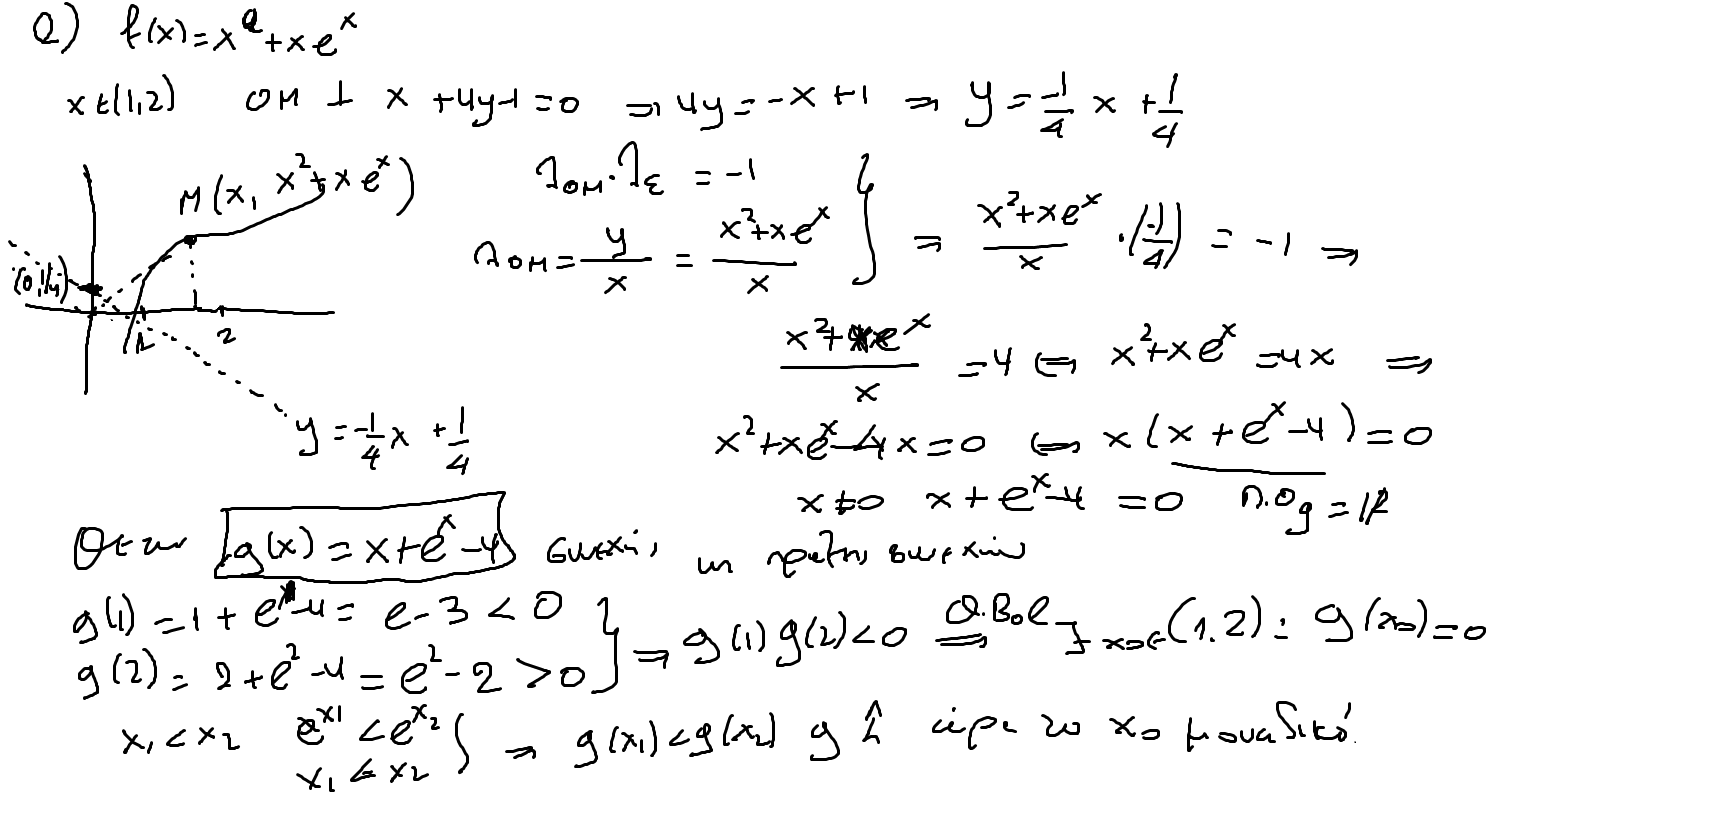 2) f(x)=x²+xe^x
x∈(1,2) OM ⊥ x+4y-1=0 ⇒ 4y=-x+1 ⇒ y=-1/4 x+1/4
M(x, x²+xe^x) λ_OM·λ_ε = -1
λ_OM = y/x = (x²+xe^x)/x } ⇒ (x²+xe^x)/x ·(-1/4) = -1 ⇒
(0,1/4)
1 2
(x²+xe^x)/x =4 ⇔ x²+xe^x=4x ⇒
y=-1/4 x+1/4
x²+xe^x-4x=0 ⇔ x(x+e^x-4)=0
x≠0 x+e^x-4=0 Π.Ο_g=ℝ
Θέτω g(x)=x+e^x-4 συνεχής, ως πράξεις συνεχών
g(1)=1+e-4=e-3<0
g(2)=2+e²-4=e²-2>0 } ⇒ g(1)g(2)<0 ⇒ Θ.Bol ∃ x₀∈(1.2): g(x₀)=0
x₁<x₂ e^x₁<e^x₂
x₁<x₂ } ⇒ g(x₁)<g(x₂) g ↑ άρα το x₀ μοναδικό.